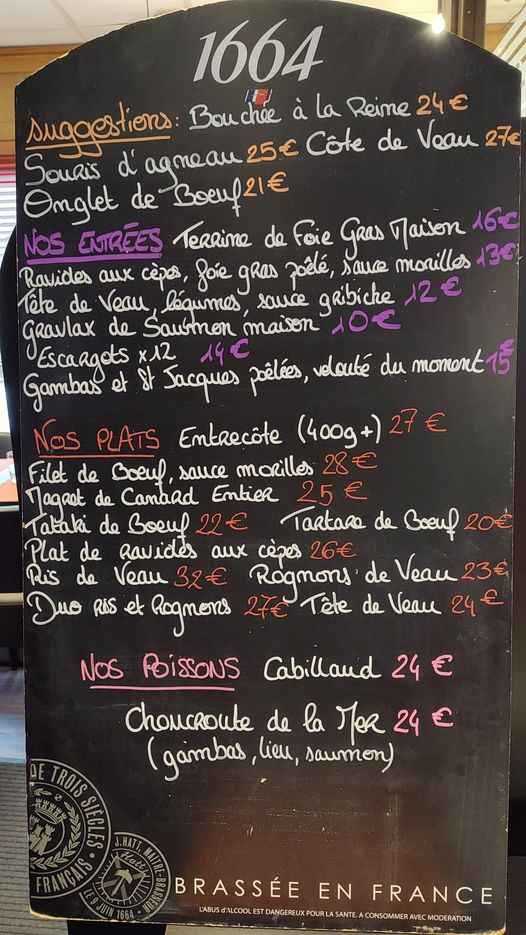 1664
Suggestions: Bouchée à la Reine 24€
Souris d'agneau 25€ Côte de Veau 27€
Onglet de Boeuf 21€
NOS ENTRÉES Terrine de Foie Gras Maison 16€
Ravioles aux cèpes, foie gras poêlé, sauce morilles 13€
Tête de Veau, légumes, sauce gribiche 12€
Gravlax de Saumon maison 10€
Escargots x12 14€
Gambas et St Jacques poêlées, velouté du moment 15€
NOS PLATS Entrecôte (400g+) 27€
Filet de Boeuf, sauce morilles 28€
Magret de Canard Entier 25€
Tataki de Boeuf 22€ Tartare de Boeuf 20€
Plat de ravioles aux cèpes 26€
Ris de Veau 32€ Rognons de Veau 23€
Duo Ris et Rognons 27€ Tête de Veau 24€
NOS POISSONS Cabillaud 24€
Choucroute de la Mer 24€
(gambas, lieu, saumon)
DE TROIS SIÈCLES
FRANÇAIS
J. HATT, MAITRE-BRASSEUR
LE 9 JUIN 1664
BRASSÉE EN FRANCE
L'ABUS d'ALCOOL EST DANGEREUX POUR LA SANTE. A CONSOMMER AVEC MODERATION